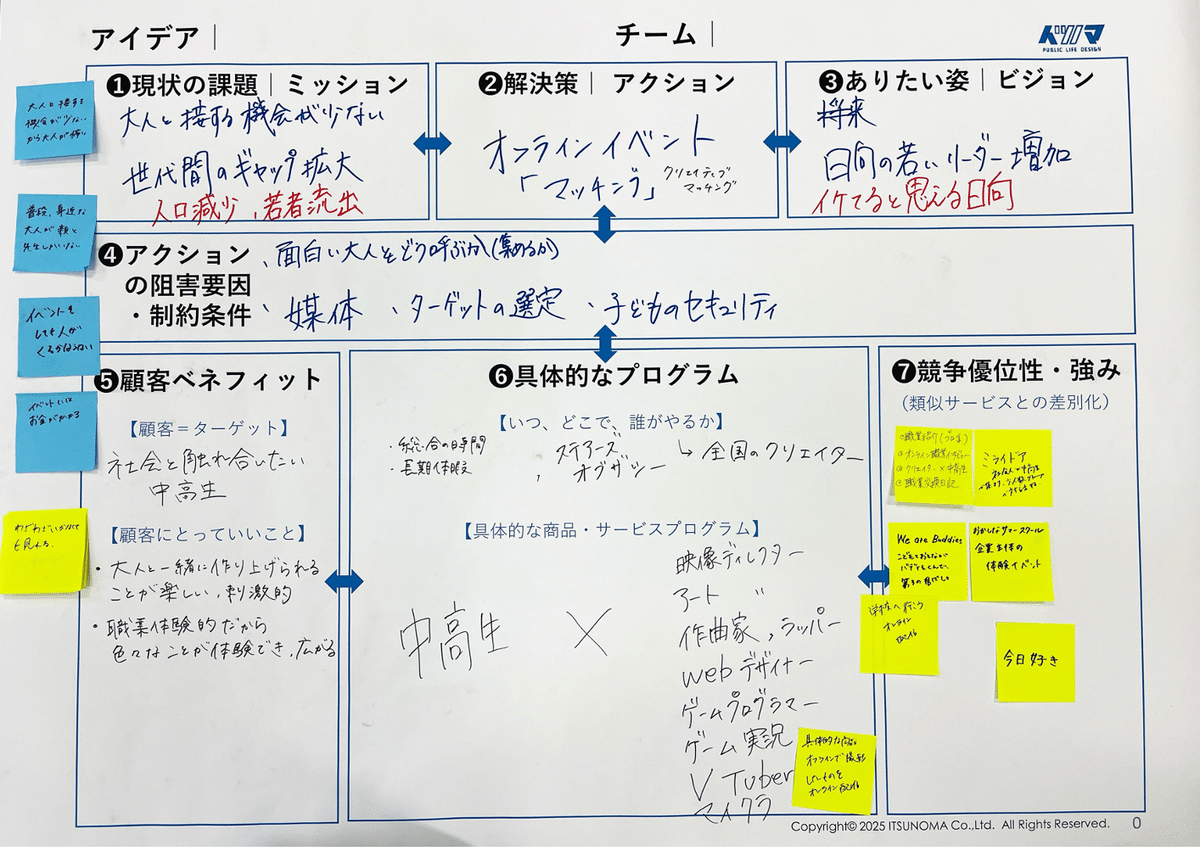 アイデア｜
チーム｜
イツノマ
PUBLIC LIFE DESIGN
❶現状の課題｜ミッション
大人と接する機会が少ない
世代間のギャップ拡大
人口減少、若者流出
❷解決策｜アクション
オンラインイベント
「マッチング」
クリエイティブ
マッチング
❸ありたい姿｜ビジョン
将来
日向の若いリーダー増加
イケてると思える日向
❹アクション
の阻害要因
・制約条件
、面白い大人をどう呼ぶか(集めるか)
、媒体 、ターゲットの選定 、子どものセキュリティ
大人と接する
機会が少ない
から大人が怖い
普段、身近な
大人が親と
先生しかいない
イベントを
しても人が
くるか
イベントには
お金がかかる
❺顧客ベネフィット
【顧客＝ターゲット】
社会と触れ合いたい
中高生
【顧客にとっていいこと】
・大人と一緒に作り上げられる
ことが楽しい、刺激的
・職業体験的だから
色々なことが体験でき、広がる
も見れる。
❻具体的なプログラム
【いつ、どこで、誰がやるか】
・総合の時間
・長期休暇
、ステアーズ
オブザシー
↳全国のクリエイター
【具体的な商品・サービスプログラム】
中高生 ×
映像ディレクター
アート 〃
作曲家、ラッパー
webデザイナー
ゲームプログラマー
ゲーム実況
V Tuber
マイクラ
具体的な
オンラインで
したものを
オンライン
❼競争優位性・強み
（類似サービスとの差別化）
クリエイター×中高生
ミライドア
We are Buddies
こどもとおとなが
おかしなサマースクール
企業主体の
体験イベント
オンライン
今日好き
Copyright© 2025 ITSUNOMA Co.,Ltd. All Rights Reserved.
0